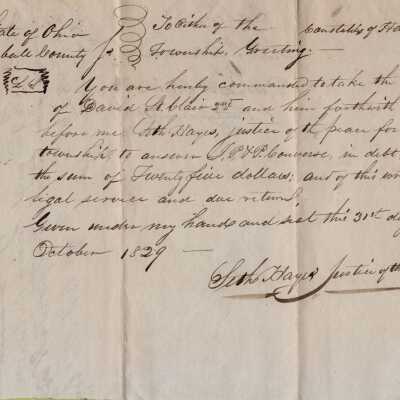 State of Ohio } To Either of the Constables of Ha
ball County } ss. Township, Greeting.—
L.S.
You are hereby commanded to take the
of David St. Clair 2nd and him forthwith
before me Seth Hayes, justice of the peace for
township, to answer S. & P. Converse, in debt
the sum of Twenty five dollars; and of this wr
legal service and due return.
Given under my hand and seal this 31st d
October 1829 —
Seth Hayes Justice of th